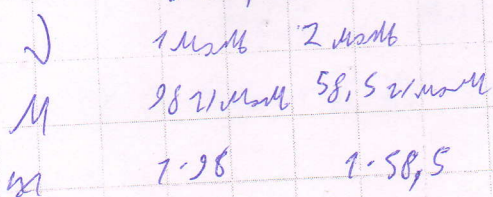 ν 1 моль 2 моль
M 98 г/моль 58,5 г/моль
m 1·98 1·58,5